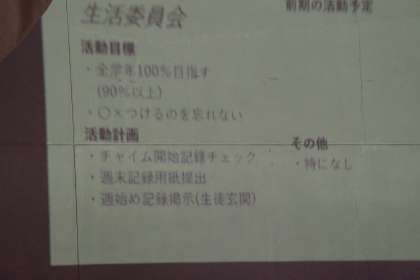 生活委員会
活動目標
・全学年100%目指す
(90%以上)
・○×つけるのを忘れない
活動計画
・チャイム開始記録チェック
・週末記録用紙提出
・週始め記録掲示(生徒玄関)
前期の活動予定
その他
・特になし